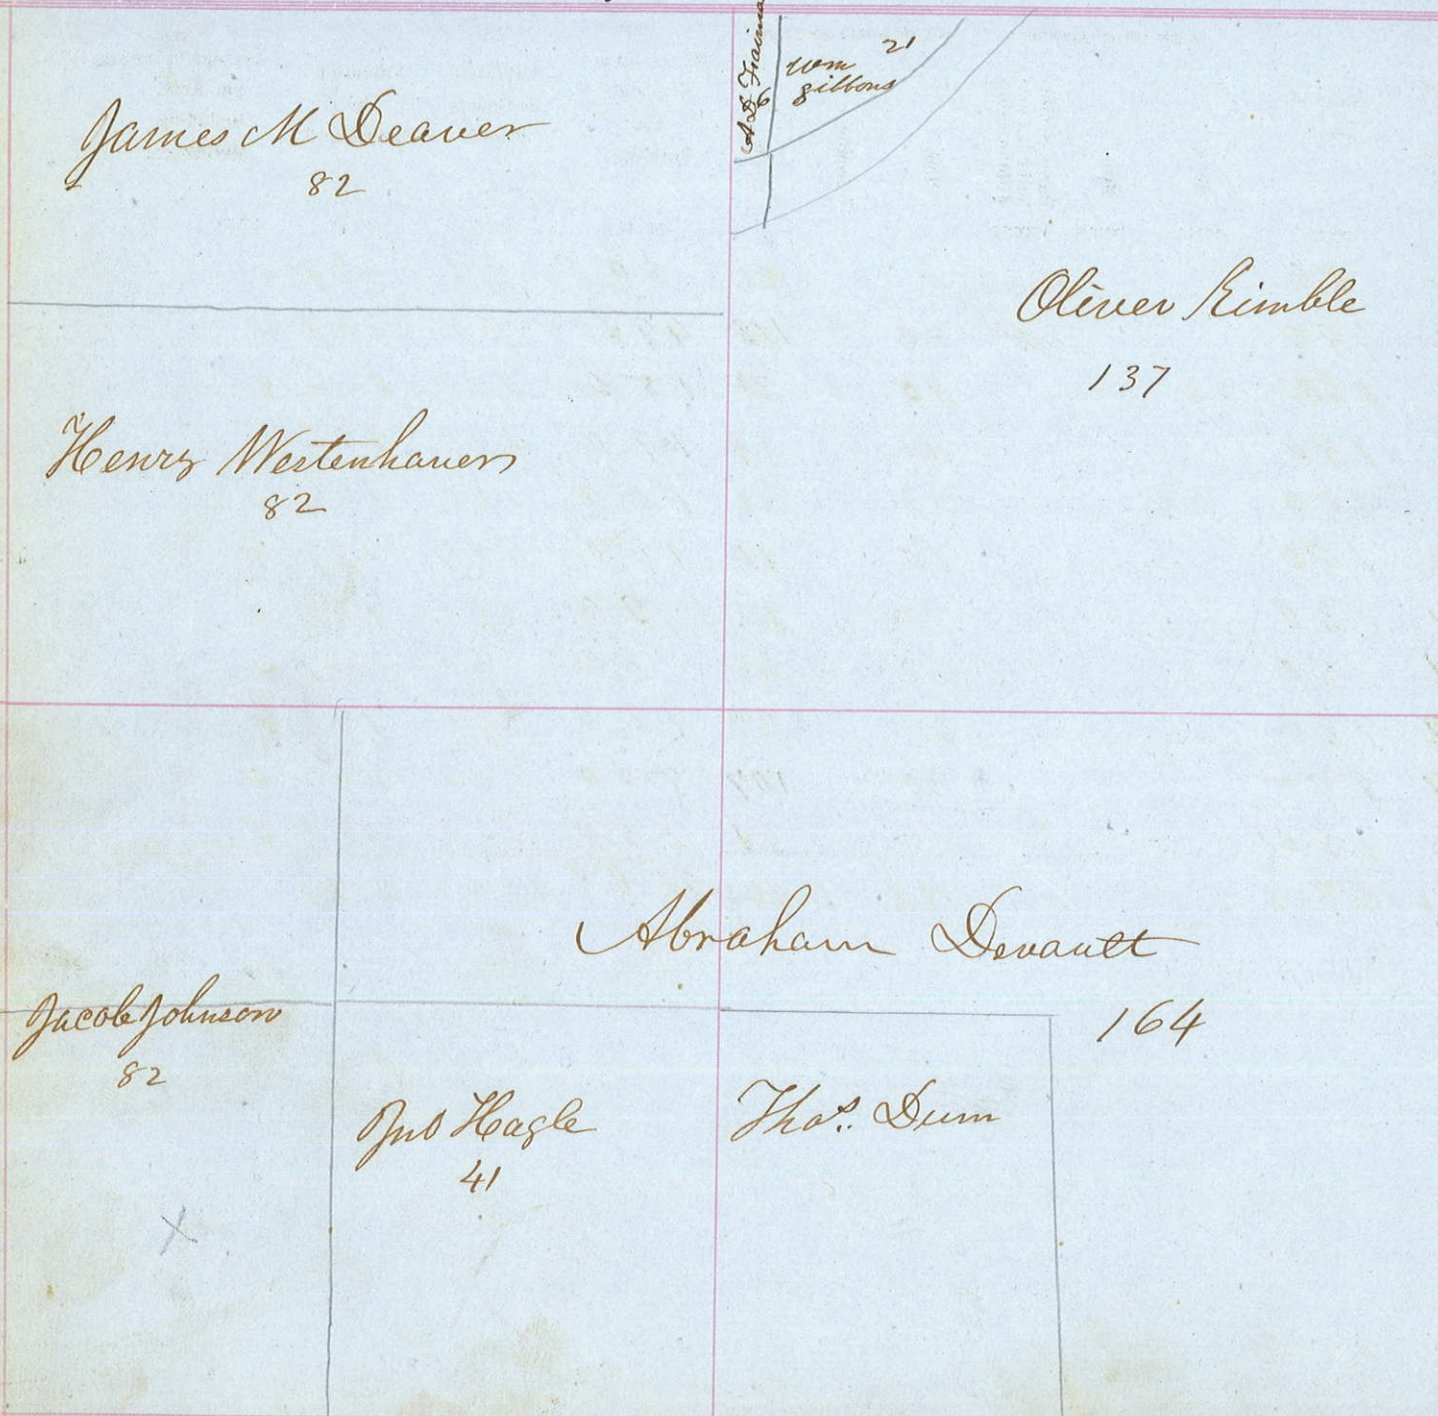 James M Deaver
82
A D
6
Wm 21
Gibbons
Oliver Kimble
137
Henry Westenhaver
82
Abraham Devault
164
Jacob Johnson
82
Jno Hagle
41
Thos. Dum
X